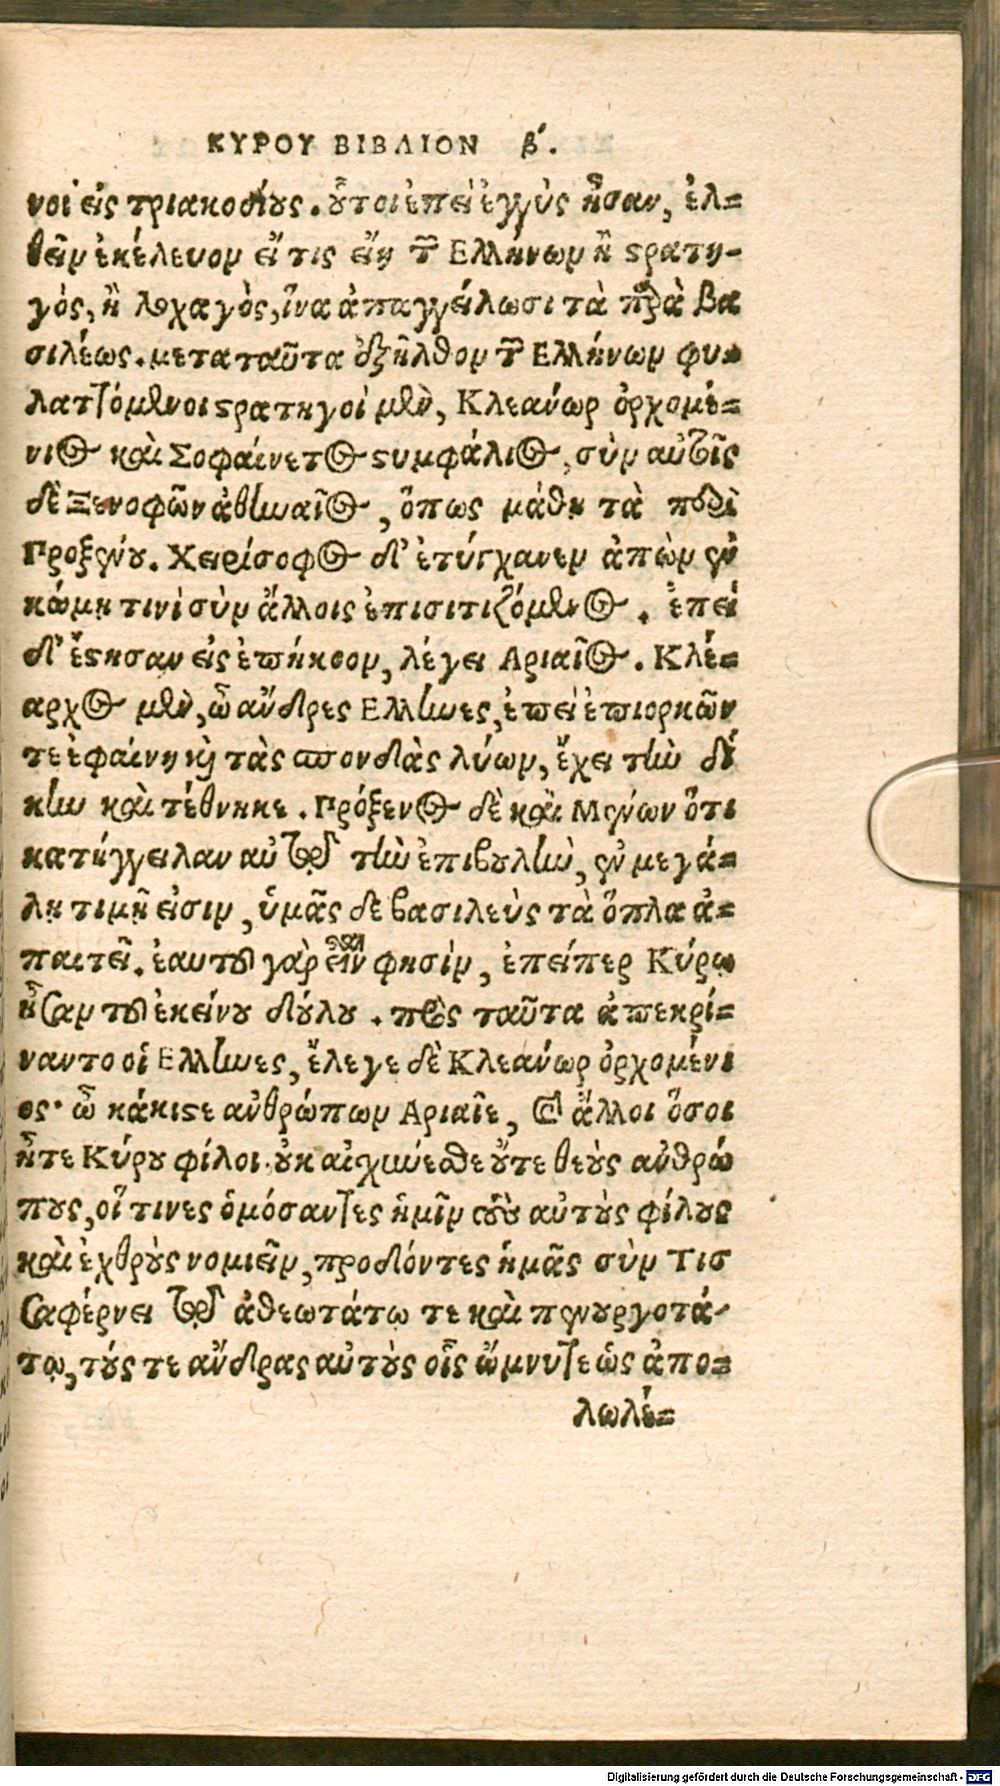 ΚΥΡΟΥ ΒΙΒΛΙΟΝ β´.
νοὶ εἰς τριακοσίους. οὗτοι ἐπεὶ ἐγγὺς ἦσαν, ἐλ=
θεῖν ἐκέλευον εἴ τις εἴη τῶν Ελλήνων ἢ στρατη-
γὸς, ἢ λοχαγὸς, ἵνα ἀπαγγείλωσι τὰ παρὰ βα
σιλέως. μετα ταῦτα ἐξῆλθον τῶν Ελλήνων φυ=
λαττόμενοι στρατηγοὶ μὲν, Κλεάνωρ ὀρχομέ=
νιος καὶ Σοφαίνετος στυμφάλιος, σὺν αὐτοῖς
δὲ Ξενοφῶν ἀθηναῖος, ὅπως μάθῃ τὰ περὶ
Προξένου. Χειρίσοφος δ' ἐτύγχανεν ἀπὼν ἐν
κώμῃ τινὶ σὺν ἄλλοις ἐπισιτιζόμενος. ἐπεὶ
δ' ἔστησαν εἰς ἐπήκοον, λέγει Αριαῖος. Κλέ=
αρχος μὲν, ὦ ἄνδρες Ελληνες, ἐπεὶ ἐπιορκῶν
τε ἐφαίνη καὶ τὰς σπονδὰς λύων, ἔχει τὴν δί
κην καὶ τέθνηκε. Πρόξενος δὲ καὶ Μένων ὅτι
κατήγγειλαν αὐτοῦ τὴν ἐπιβουλὴν, ἐν μεγά=
λῃ τιμῇ εἰσιν, ὑμᾶς δε βασιλεὺς τὰ ὅπλα ἀ=
παιτεῖ. ἑαυτοῦ γὰρ εἶναι φησὶν, ἐπείπερ Κύρου
ἦσαν τοῦ ἐκείνου δούλου. πρὸς ταῦτα ἀπεκρί=
ναντο οἱ Ελληνες, ἔλεγε δὲ Κλεάνωρ ὀρχομένι
ος· ὦ κάκιστε ἀνθρώπων Αριαῖε, καὶ ἄλλοι ὅσοι
ἦτε Κύρου φίλοι. οὐκ αἰσχύνεσθε οὔτε θεοὺς ἀνθρώ
πους, οἵ τινες ὁμόσαντες ἡμῖν τοὺς αὐτοὺς φίλους
καὶ ἐχθροὺς νομιεῖν, προδόντες ἡμᾶς σὺν Τισ
σαφέρνει τῷ ἀθεωτάτῳ τε καὶ πανουργοτά-
τῳ, τούς τε ἄνδρας αὐτοὺς οἷς ὤμνυτε ὡς ἀπο=
λωλέ=
Digitalisierung gefördert durch die Deutsche Forschungsgemeinschaft - DFG